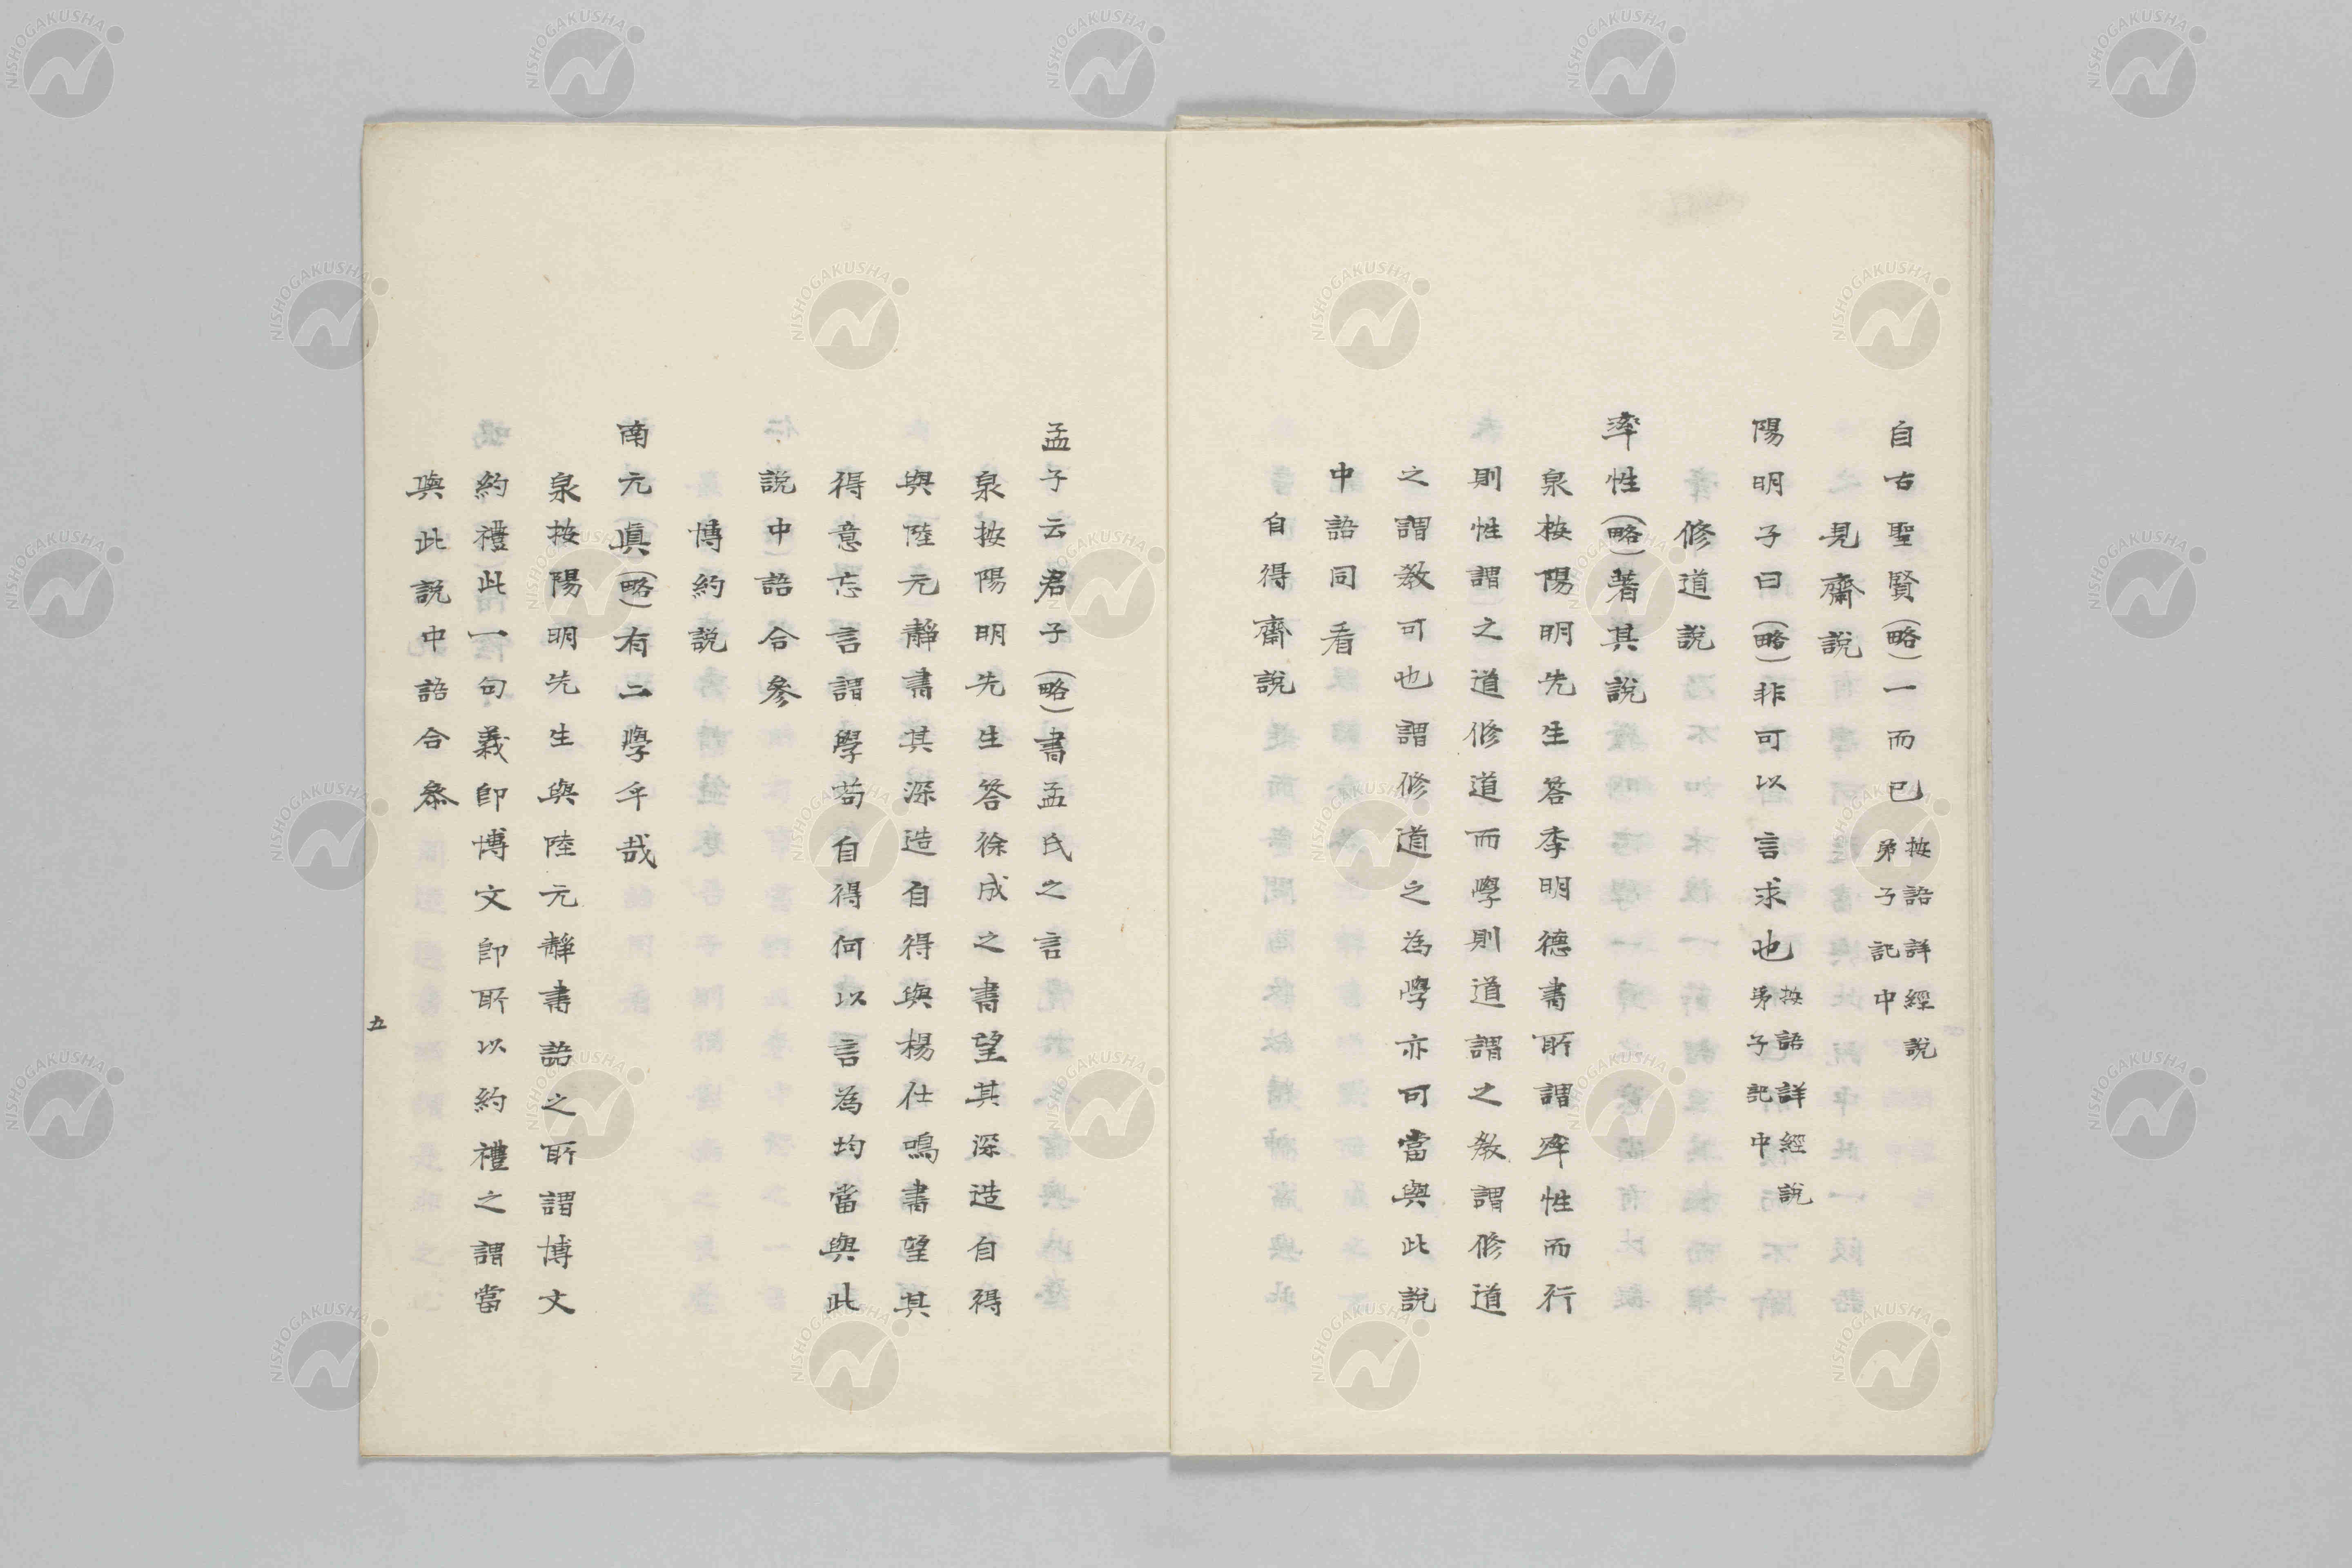 自古聖賢(略)一而已按語詳經說弟子記中
見齋說
陽明子曰(略)非可以言求也按語詳經說弟子記中
修道說
率性(略)著其說
泉按陽明先生答李明德書所謂率性而行
則性謂之道修道而學則道謂之教謂修道
之謂教可也謂修道之為學亦可當與此說
中語同看
自得齋說
孟子云君子(略)書孟氏之言
泉按陽明先生答徐成之書望其深造自得
與陸元靜書其深造自得與楊仕鳴書望其
得意忘言謂學苟自得何以言為均當與此
說中語合參
博約說
南元真(略)有二學乎哉
泉按陽明先生與陸元靜書語之所謂博文
約禮此一句義即博文即所以約禮之謂當
與此說中語合參
五
NISHOGAKUSHA